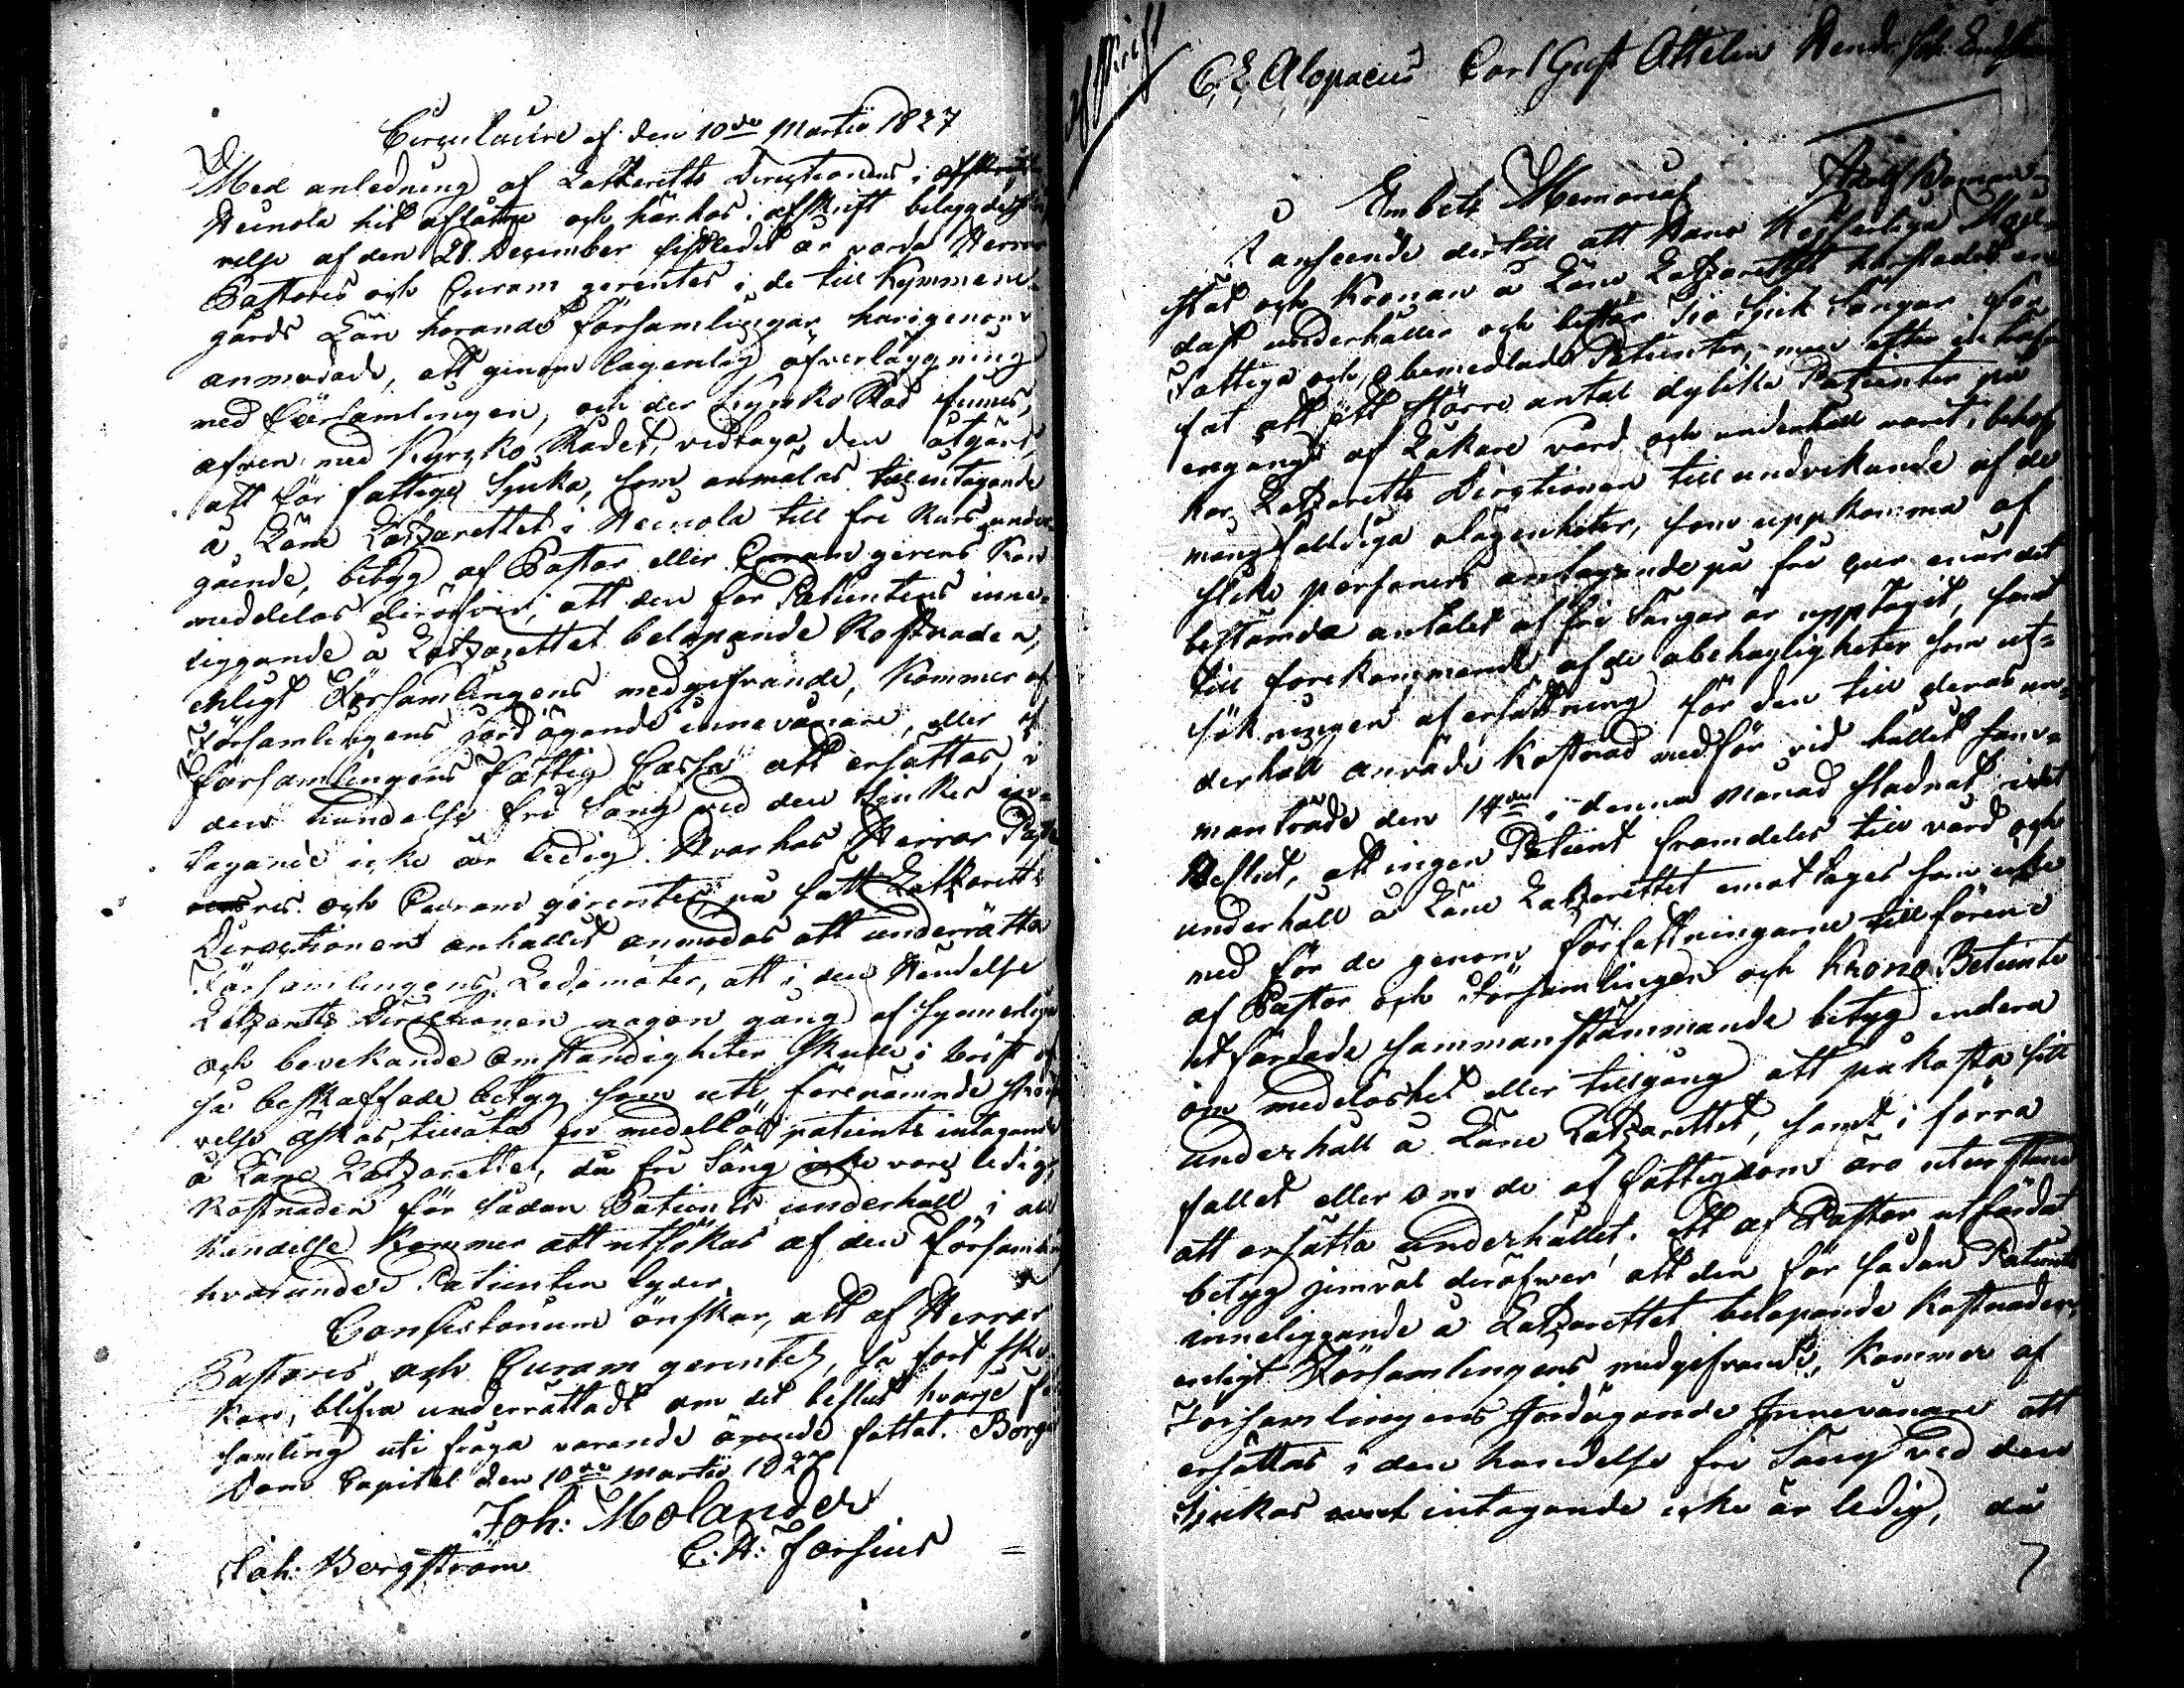 Circulaire af den 10de Martii 1827
Med anledning af Latzeretts Directionens i
Heinola hit aflåtne och här hos i afskrift belagde skri
velse af den 28. December sistledit år varda Herrar
Pastores och Curam gerentes i de till Kymmene-
gårds Län hörande församlingar härigenom
anmodade, att genom lagenlig öfverläggning
med Församlingen, och der Kyrko Råd finnes,
äfven med Kyrko Rådet, vidtaga den åtgärd,
att för fattige Sjuka, som anmälas till intagande
å Läne Latzarettet i Heinola till fri Kurs under-
gående, betyg af Pastor eller Curam gerens kan
meddelas deröfver, att den för Patientens inne-
liggande å Latzarettet belöpande Kostnaden,
enligt Församlingens medgifvande, kommer af
Församlingens jord ägande innevånare, eller af
församlingens Fattig Cassa att ersättas, i
den händelse fri Säng ved den Sjukes in-
tagande icke är ledig. Hvarhos Herrar Pasto
res och Curam gerentes på satt Latzaretts
Directionen anhållit anmodas att underrätta
Församlingens Ledamöter, att i den Händelse
Latzaretts Directionen någon gång af synnerliga
och bevekande Omständigheter skulle i brist af
så beskaffade betyg som uti förenämnde skrif
velse äskas, tillåta en medellös patients intagande
å Läne Latzarettet, då fri Säng icke vore ledig,
Kostnaden för sådan Patients underhåll i all
händelse kommer att utsökas af den Församling
hvarunder Patienten lyder.
Consistorium önskar, att af Herrar
Pastores och Curam gerentes, så fort ske
kan, blifva underrättadt om det beslut hvarje för
samling uti fråga varande ärende fattat. Borgå
Dom Capitel den 10de Martii 1827
Joh: Molander
Joh: Bergström C. H: Forsius
Afskrift
C. E. Alopaeus Carl Gust Ottelin
Embets Memorial
I anseende dertill att Hans Kejserliga Maje-
stät och Kronan å Läne Latzarettet härstädes en
dast underhåller och består Sju Sjuk Sängar för
Fattiga och obemedlade Patienter, men ofta inträf
fat att ett större antal dylika Patienter på
engång af Läkare vård och underhåll varit i behof
har Latzaretts Directionen till undvikande af de
mångfalldiga olägenheter, som uppkomma af
slike personers antagande på fri Cur enär det
bestämda antalet af fri Sängar är upptagit, samt
till förekommande af de obehagligheter som ut-
sökningen af ersättning för den till deras un-
derhåll använde Kostnad medför vid hållet samm
manträde den 14de i denna Månad stadnat i det
Beslut, att ingen Patient framdeles till vård och
underhåll å Läne Latzarettet emottages som icke
med för de genom författningarne tillförene
af Pastor och Församlingen och Krono Betiente
utfärdade sammanstämmande betyg endera
om medellöshet eller tillgång att påkosta sitt
underhåll å Läne Latzarettet, samt i förra
fallet eller om de af fattigdom äro
att ersätta underhållet. Ett af Pastor utfärdat
betyg jemväl deröfwer att den för sådan Patients
inneliggande å Latzarettet belöpande Kostnaden,
enligt Församlingens medgifvande, kommer af
Församlingens Jordägande Innevånare att
ersättas i den händelse fri Säng ved den
Sjukas intagande icke är ledig, då